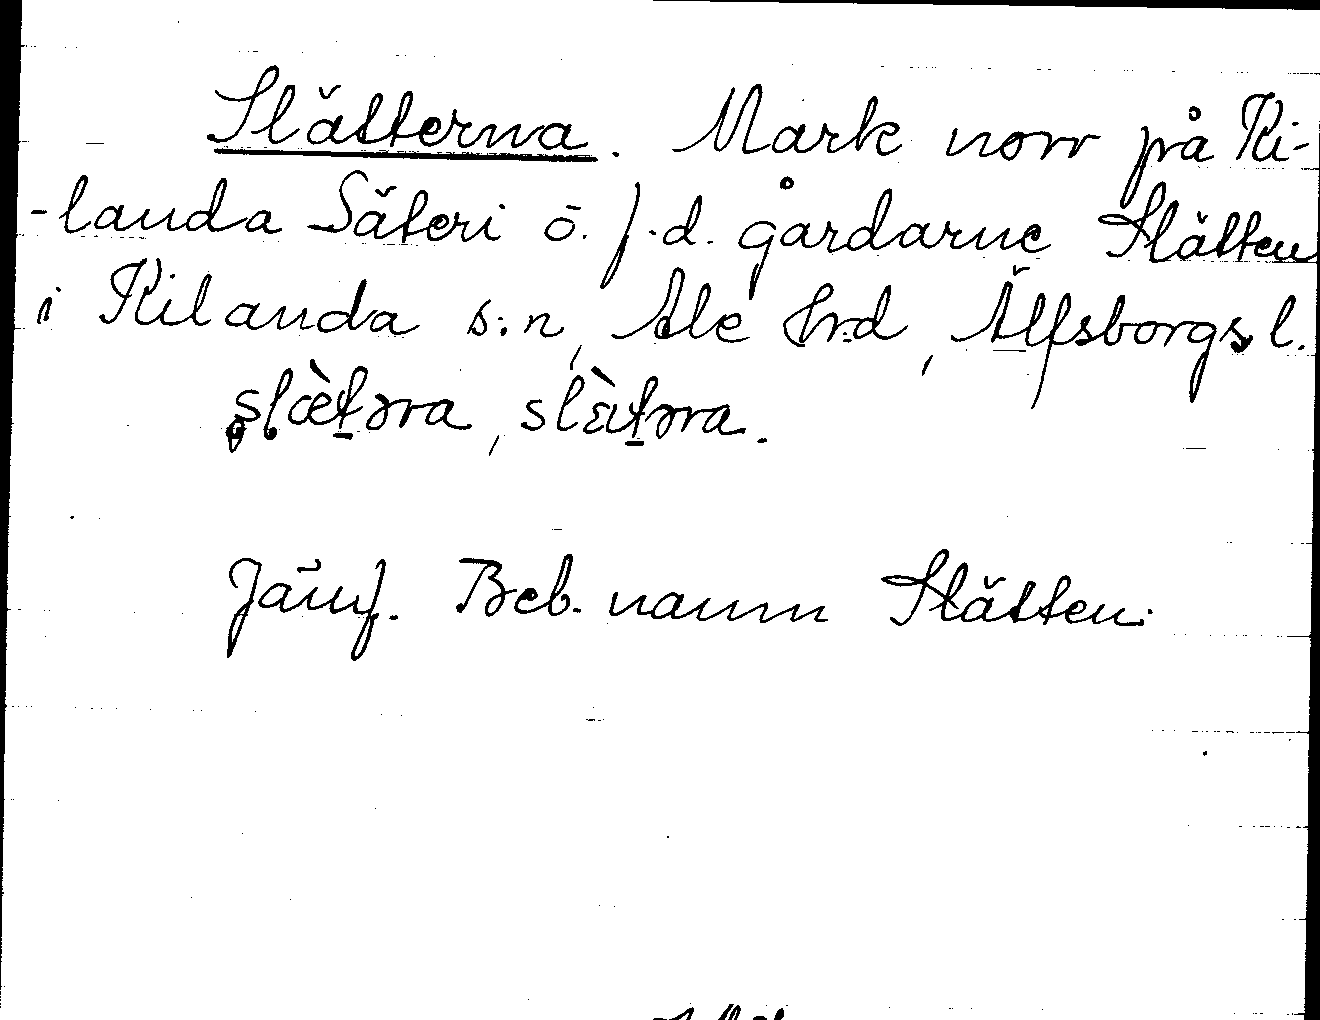 Slätterna. Mark norr på Ki-
-landa Säteri ö. f.d. gårdarne Slätten
i Kilanda s:n, Ale hrd, Älfsborgs l.
şlæ̀t̠əra, slὲt̠əra.
Jämf. Beb. namn Slätten.